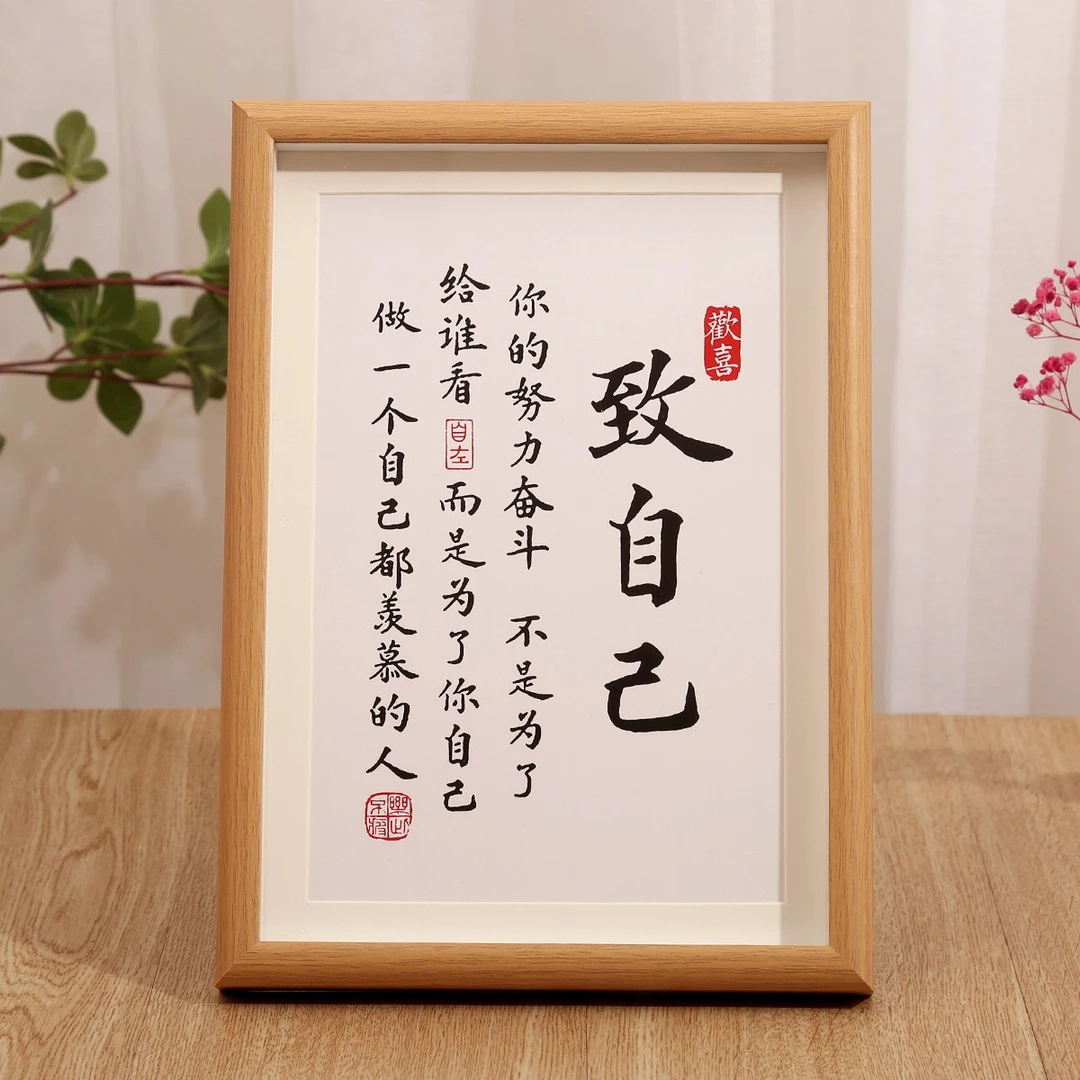 歡喜
致自己
你的努力奋斗 不是为了
给谁看 自左 而是为了你自己
做一个自己都羡慕的人